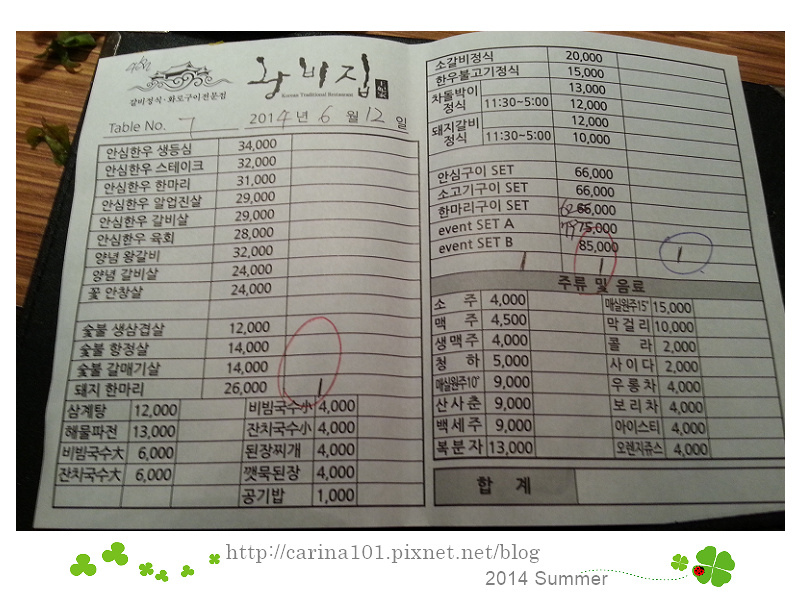 왕비집
Korean Traditional Restaurant
갈비정식·화로구이전문점
Table No. 7 2014년 6월 12일
안심한우 생등심 34,000
안심한우 스테이크 32,000
안심한우 한마리 31,000
안심한우 알업진살 29,000
안심한우 갈비살 29,000
안심한우 육회 28,000
양념 왕갈비 32,000
양념 갈비살 24,000
꽃 안창살 24,000
숯불 생삼겹살 12,000
숯불 항정살 14,000
숯불 갈매기살 14,000
돼지 한마리 26,000 1
삼계탕 12,000 비빔국수小 4,000
해물파전 13,000 잔치국수小 4,000
비빔국수大 6,000 된장찌개 4,000
잔치국수大 6,000 깻묵된장 4,000
공기밥 1,000
소갈비정식 20,000
한우불고기정식 15,000
차돌박이정식 13,000
11:30~5:00 12,000
돼지갈비정식 12,000
11:30~5:00 10,000
안심구이 SET 66,000
소고기구이 SET 66,000
한마리구이 SET 66,000
event SET A 75,000
event SET B 85,000
1 1 1
주류 및 음료
소 주 4,000 매실원주15° 15,000
맥 주 4,500 막걸리 10,000
생맥주 4,000 콜 라 2,000
청 하 5,000 사이다 2,000
매실원주10° 9,000 우롱차 4,000
산사춘 9,000 보리차 4,000
백세주 9,000 아이스티 4,000
복분자 13,000 오렌지쥬스 4,000
합 계
http://carina101.pixnet.net/blog
2014 Summer